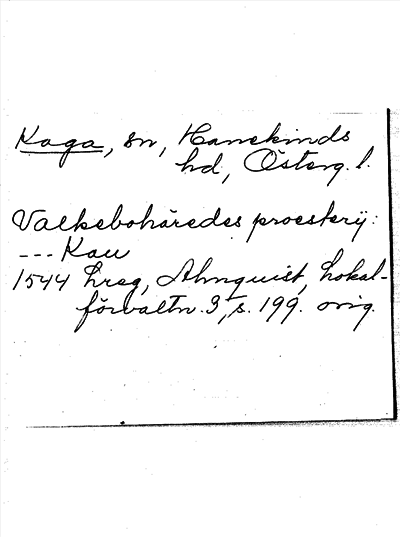 Kaga, sn, Hanekinds
hd, Österg. l.
Valkebohäredes proesterij:
--- Kau
1544 hreg, Almquist, Lokal-
förvaltn. 3, s. 199. orig.